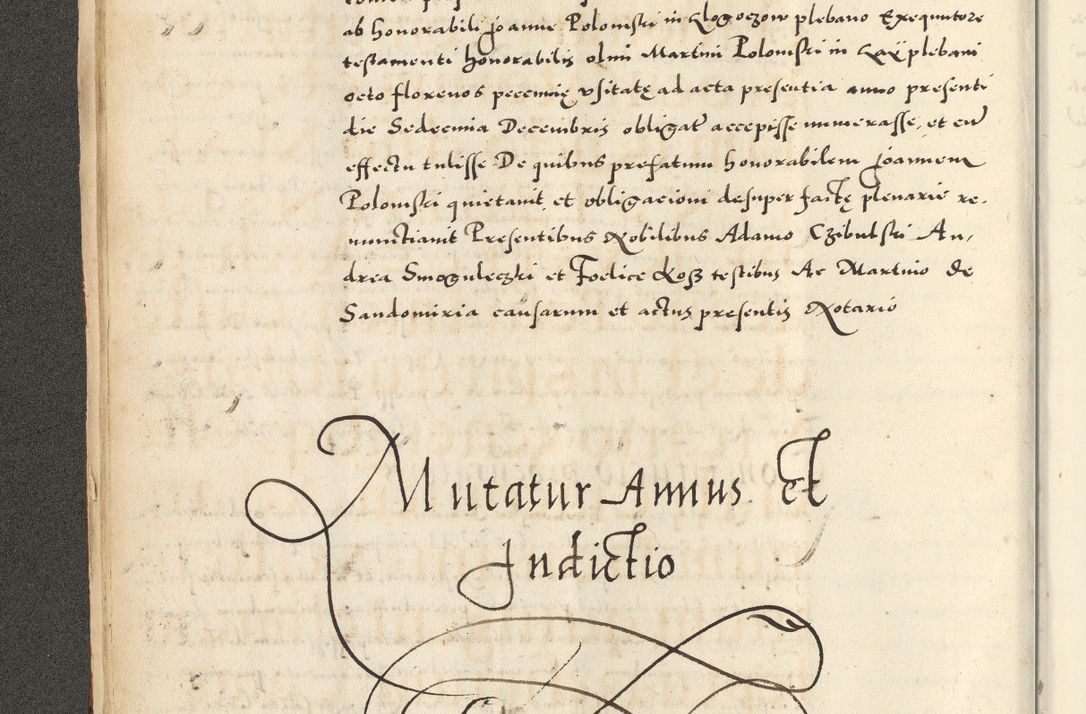 ab honorabili Joanne Polomski in Klogoczow plebano Exequutore
testamenti honorabilis olim Martini Polomski in Lax plebani
octo florenos pecunię vsitatę ad acta presentia anno presenti
die Sedecima Decembris obligat accepisse numerasse, et cum
effectu tulisse De quibus prefatum honorabilem Joannem
Polomski quietauit et obligacioni desuper factę plenarie re-
nunctiauit Presentibus Nobilibus Adamo Czibulski An-
drea Smoguleczki et Foelice Kosz testibus Ac Martino de
Sandomiria causarum et actus presentis Notario
Mutatur Annus Et
Indictio